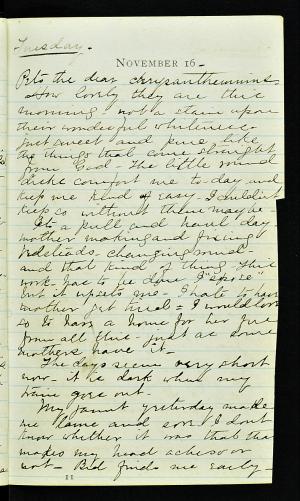 Tuesday.
NOVEMBER 16
the dear chrysanthemums
How lovely they are this
morning - not a stain upon
their wonderful whiteness.
Just sweet and pure like
the things that come straight
from God - The little
comfort me to-day and
keep me kind of easy - I couldn't
keep so without them maybe
Its a pull and haul day -
mother making and fixing
bedsteads, changing
and that kind of thing. This
work has to be done I "s'pose"
but it upsets me - I hate to have
mother get tired - I would love
so to have a home for her free
from all this - just as some
mothers have it -
The days seem very short
now - it is dark when my
train goes out -
My jaunt yesterday made
me lame and sore I don't
know whether it was that that
makes my head ache so or
not - Bed finds me early -
11